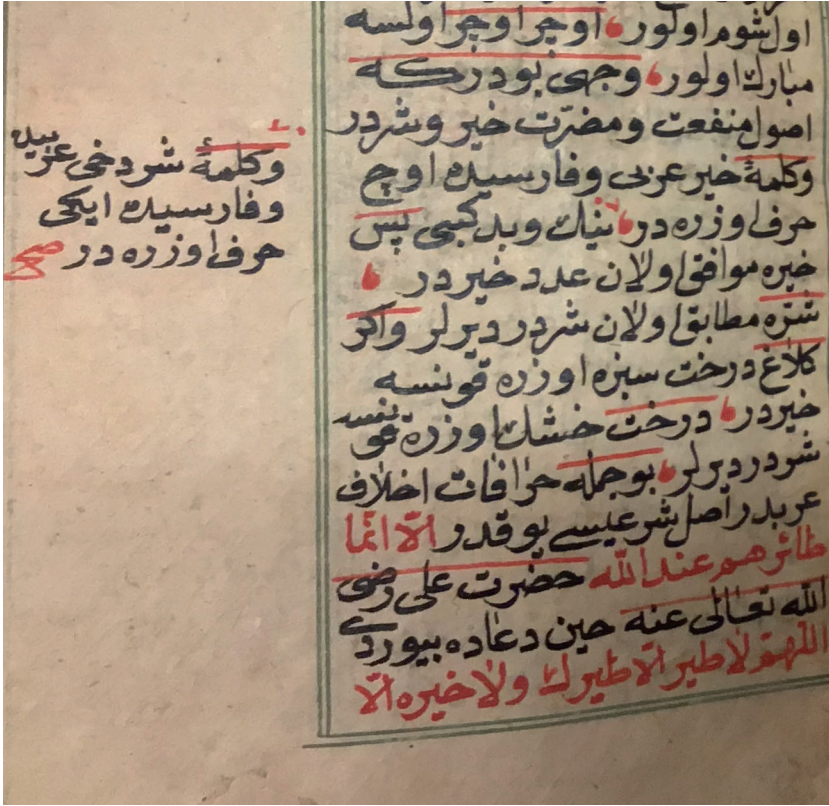 اول شوم اولور اوجر اوجر اولسه
مبارك اولور وجهى بودركه
اصول منفعت ومضرّت خير وشردر
وكلمۀ خير عربى وفارسيده اوچ
حرف اوزره در نيك وبد كبى پس
خيره موافق اولان عدد خيردر
شرّه مطابق اولان شردر ديرلر واكر
كلاغ درخت سبزه اوزره قونسه
خيردر درخت خشك اوزره قونسه
شردر ديرلر بو جمله خرافات اخلاف
عربدر اصل شرعيسى يوقدر الّا انّما
طائرهم عند الله حضرت على رضى
الله تعالى عنه حين دعاده بيوردى
اللهمّ لا طير الّا طيرك ولا خيره الّا
وكلمۀ شر دخى عربيده
وفارسيده ايكى
حرف اوزره در صح